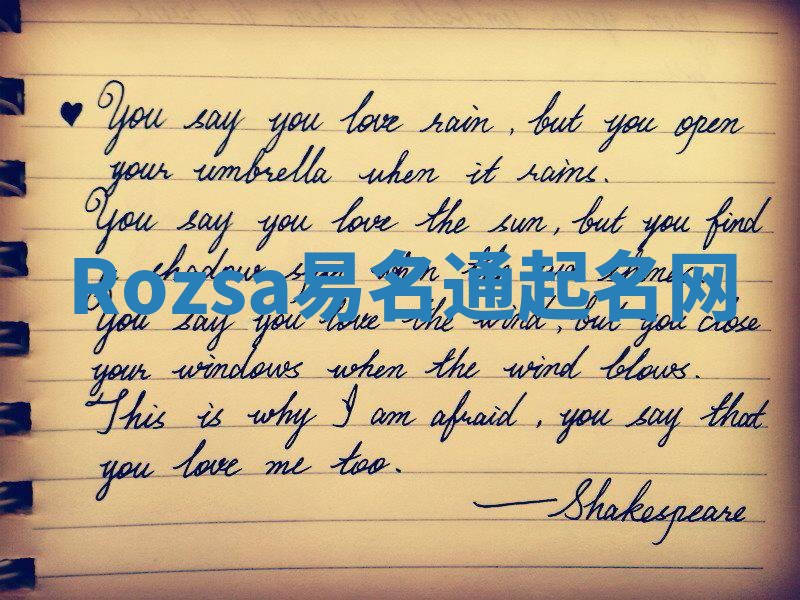 ♥ You say you love rain, but you open
your umbrella when it rains.
You say you love the sun, but you find
a shadow spot when the sun shines.
Rozsa易名通起名网
You say you love the wind, but you close
your windows when the wind blows.
This is why I am afraid, you say that
you love me too.
—Shakespeare